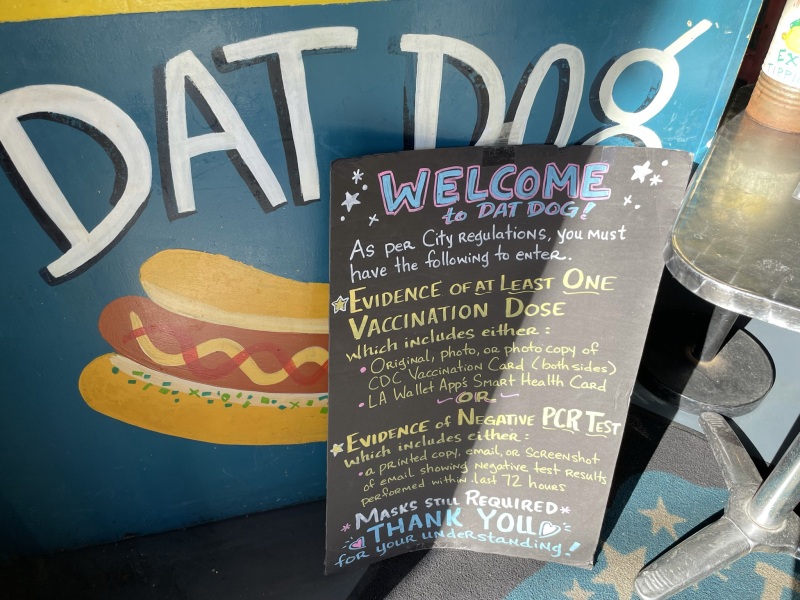 DAT DOG
WELCOME
to DAT DOG!
As per City Regulations, you must
have the following to enter.
EVIDENCE OF AT LEAST ONE
VACCINATION DOSE
which includes either:
• Original, photo, or photo copy of
CDC Vaccination Card (both sides)
• LA Wallet App's Smart Health Card
- OR -
EVIDENCE OF NEGATIVE PCR TEST
which includes either:
• a printed copy, email, or screenshot
of email showing negative test results
performed within last 72 hours
MASKS STILL REQUIRED
THANK YOU
for your understanding!